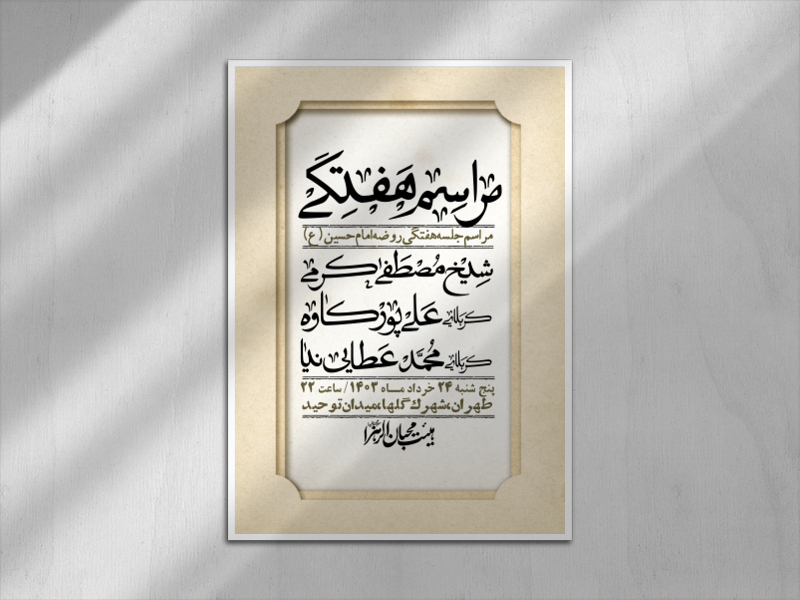 مراسم هفتگی
مراسم جلسه هفتگی روضه امام حسین (ع)
شیخ مصطفی کرمی
کربلائی علی پورکاوه
کربلائی محمد عطایی نیا
پنج شنبه ۲۴ خرداد ماه ۱۴۰۳/ ساعت ۲۲
طهران،شهرك گلها،میدان توحید
هیئت محبان الزهرا